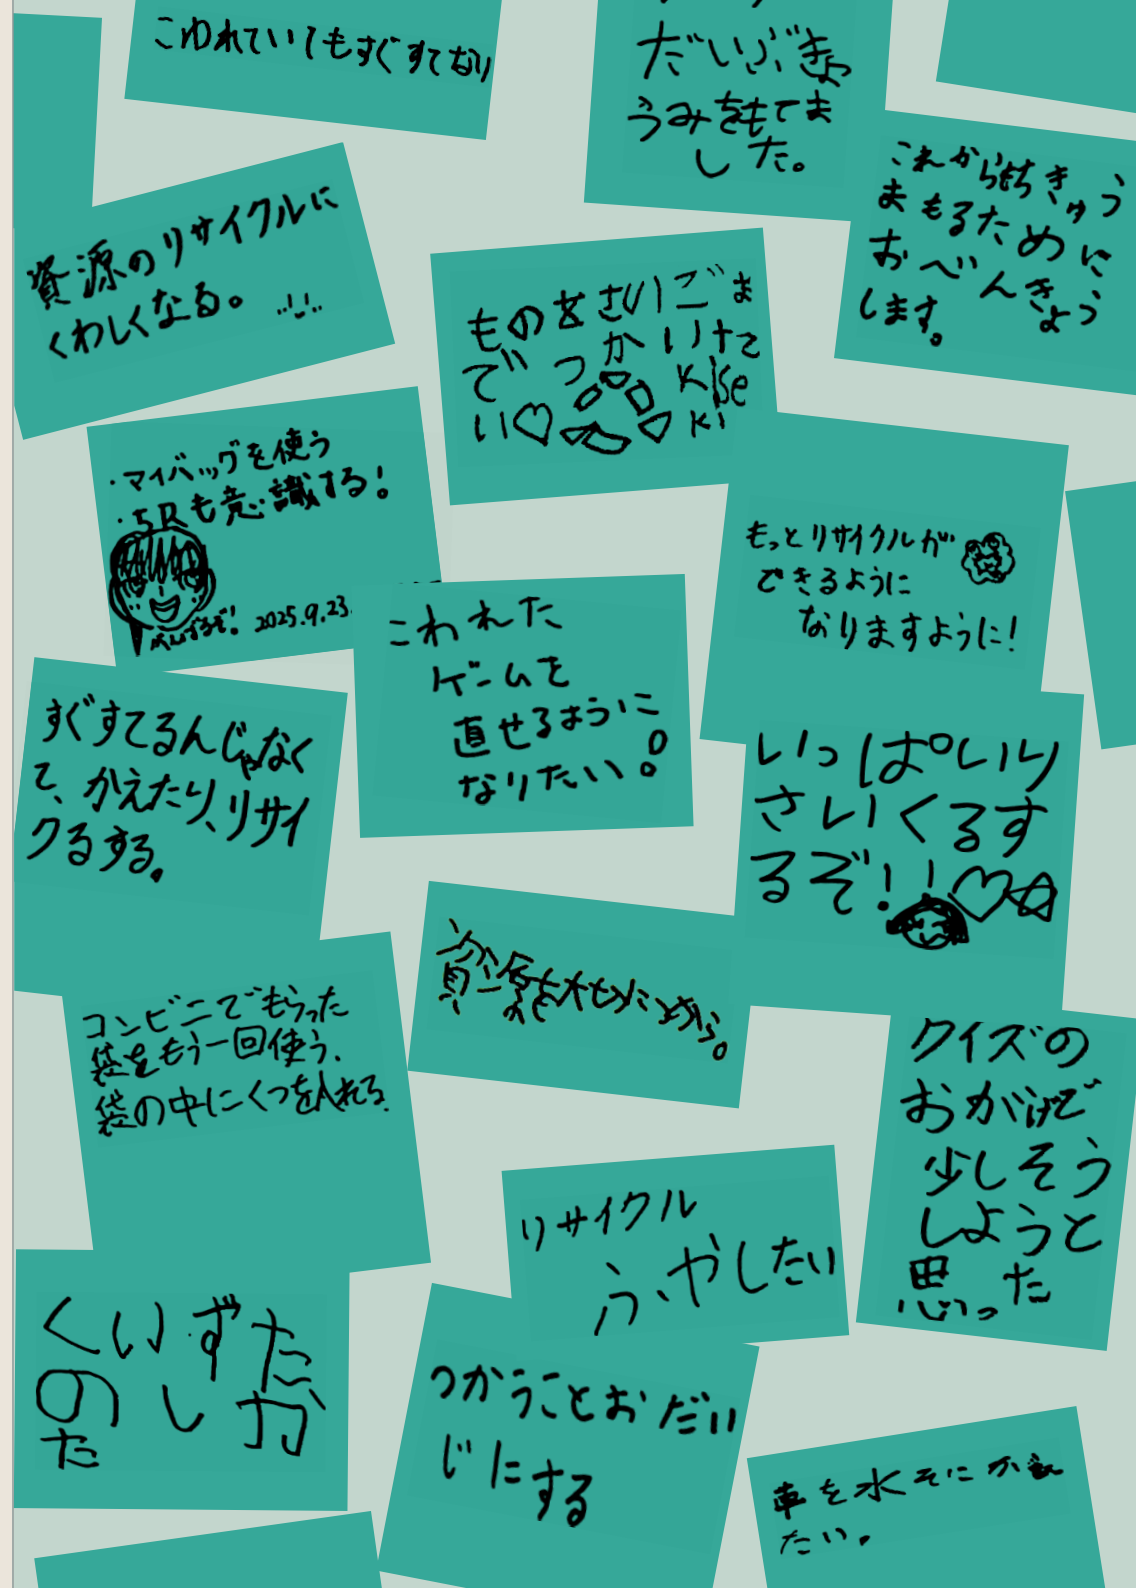 こわれていてもすぐすてない
だいぶきょ
うみをもてま
した。
これからもちきゅう
まもるために
おべんきょう
します。
資源のリサイクルに
くわしくなる。
ものをさいごま
でつかいたて
い♡
Kise
ki
・マイバッグを使う
・5Rも意識する!
がんばるぞ! 2025.9.23.
もっとリサイクルが
できるように
なりますように!
こわれた
ゲームを
直せるように
なりたい!
すぐすてるんじゃなく
て、かえたり、リサイ
クるする。
いっぱいり
さいくるす
るぞ!!♡☆
資源を大切に
コンビニでもらった
袋をもう一回使う。
袋の中にくつを入れる。
クイズの
おかげで
少しそう
しようと
思った
リサイクル
ふやしたい
くいずた
のしか
た
つかうことおだい
じにする
車を水そに
たい。